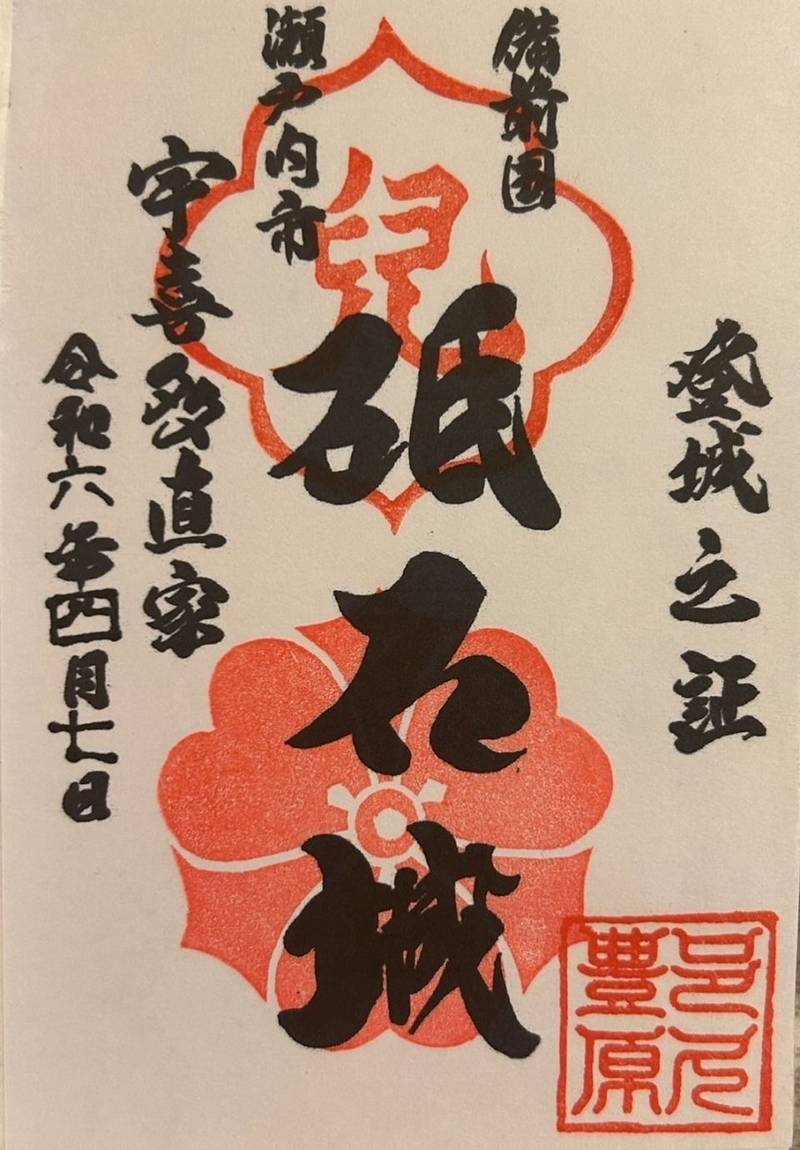 登城之証
備前国
兒
砥石城
瀬戸内市
宇喜多直家
令和六年四月七日
邑久
豊原